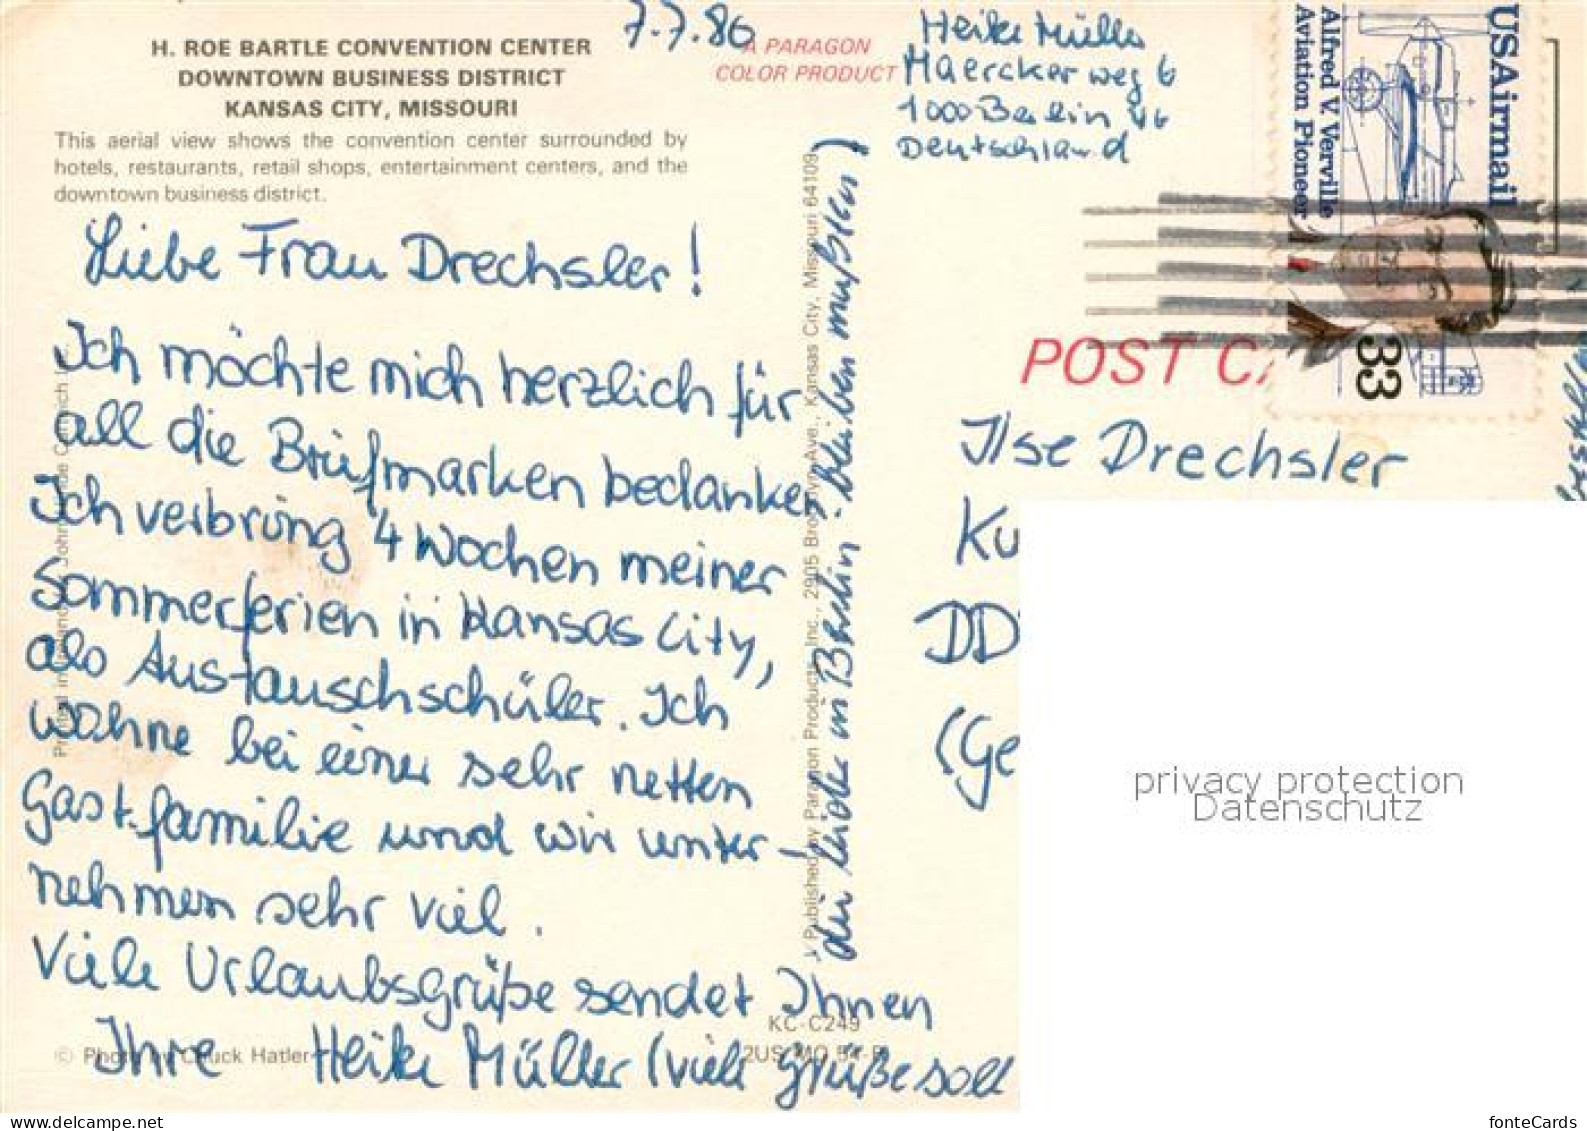 H. ROE BARTLE CONVENTION CENTER
DOWNTOWN BUSINESS DISTRICT
KANSAS CITY, MISSOURI
This aerial view shows the convention center surrounded by
hotels, restaurants, retail shops, entertainment centers, and the
downtown business district.
7.7.86
A PARAGON
COLOR PRODUCT
Heike Müller
Maerckerweg 6
1000 Berlin 46
Deutschland
USAirmail
Alfred V. Verville
Aviation Pioneer
33
POST CA
Liebe Frau Drechsler!
Ich möchte mich herzlich für
all die Briefmarken bedanken.
Ich verbring 4 Wochen meiner
Sommerferien in Kansas City,
als Austauschschüler. Ich
wohne bei einer sehr netten
Gastfamilie und wir unter-
nehmen sehr viel.
Viele Urlaubsgrüße sendet Ihnen
Ihre Heike Müller (viele Grüße soll
in Berlin bleiben mußten)
Published by Paragon Products, Inc., 2905 Brooklyn Ave., Kansas City, Missouri 64109
© Photo by Chuck Hatler
KC-C249
2US MO
Ilse Drechsler
Ku
DD
(Ge
privacy protection
Datenschutz
fonteCards